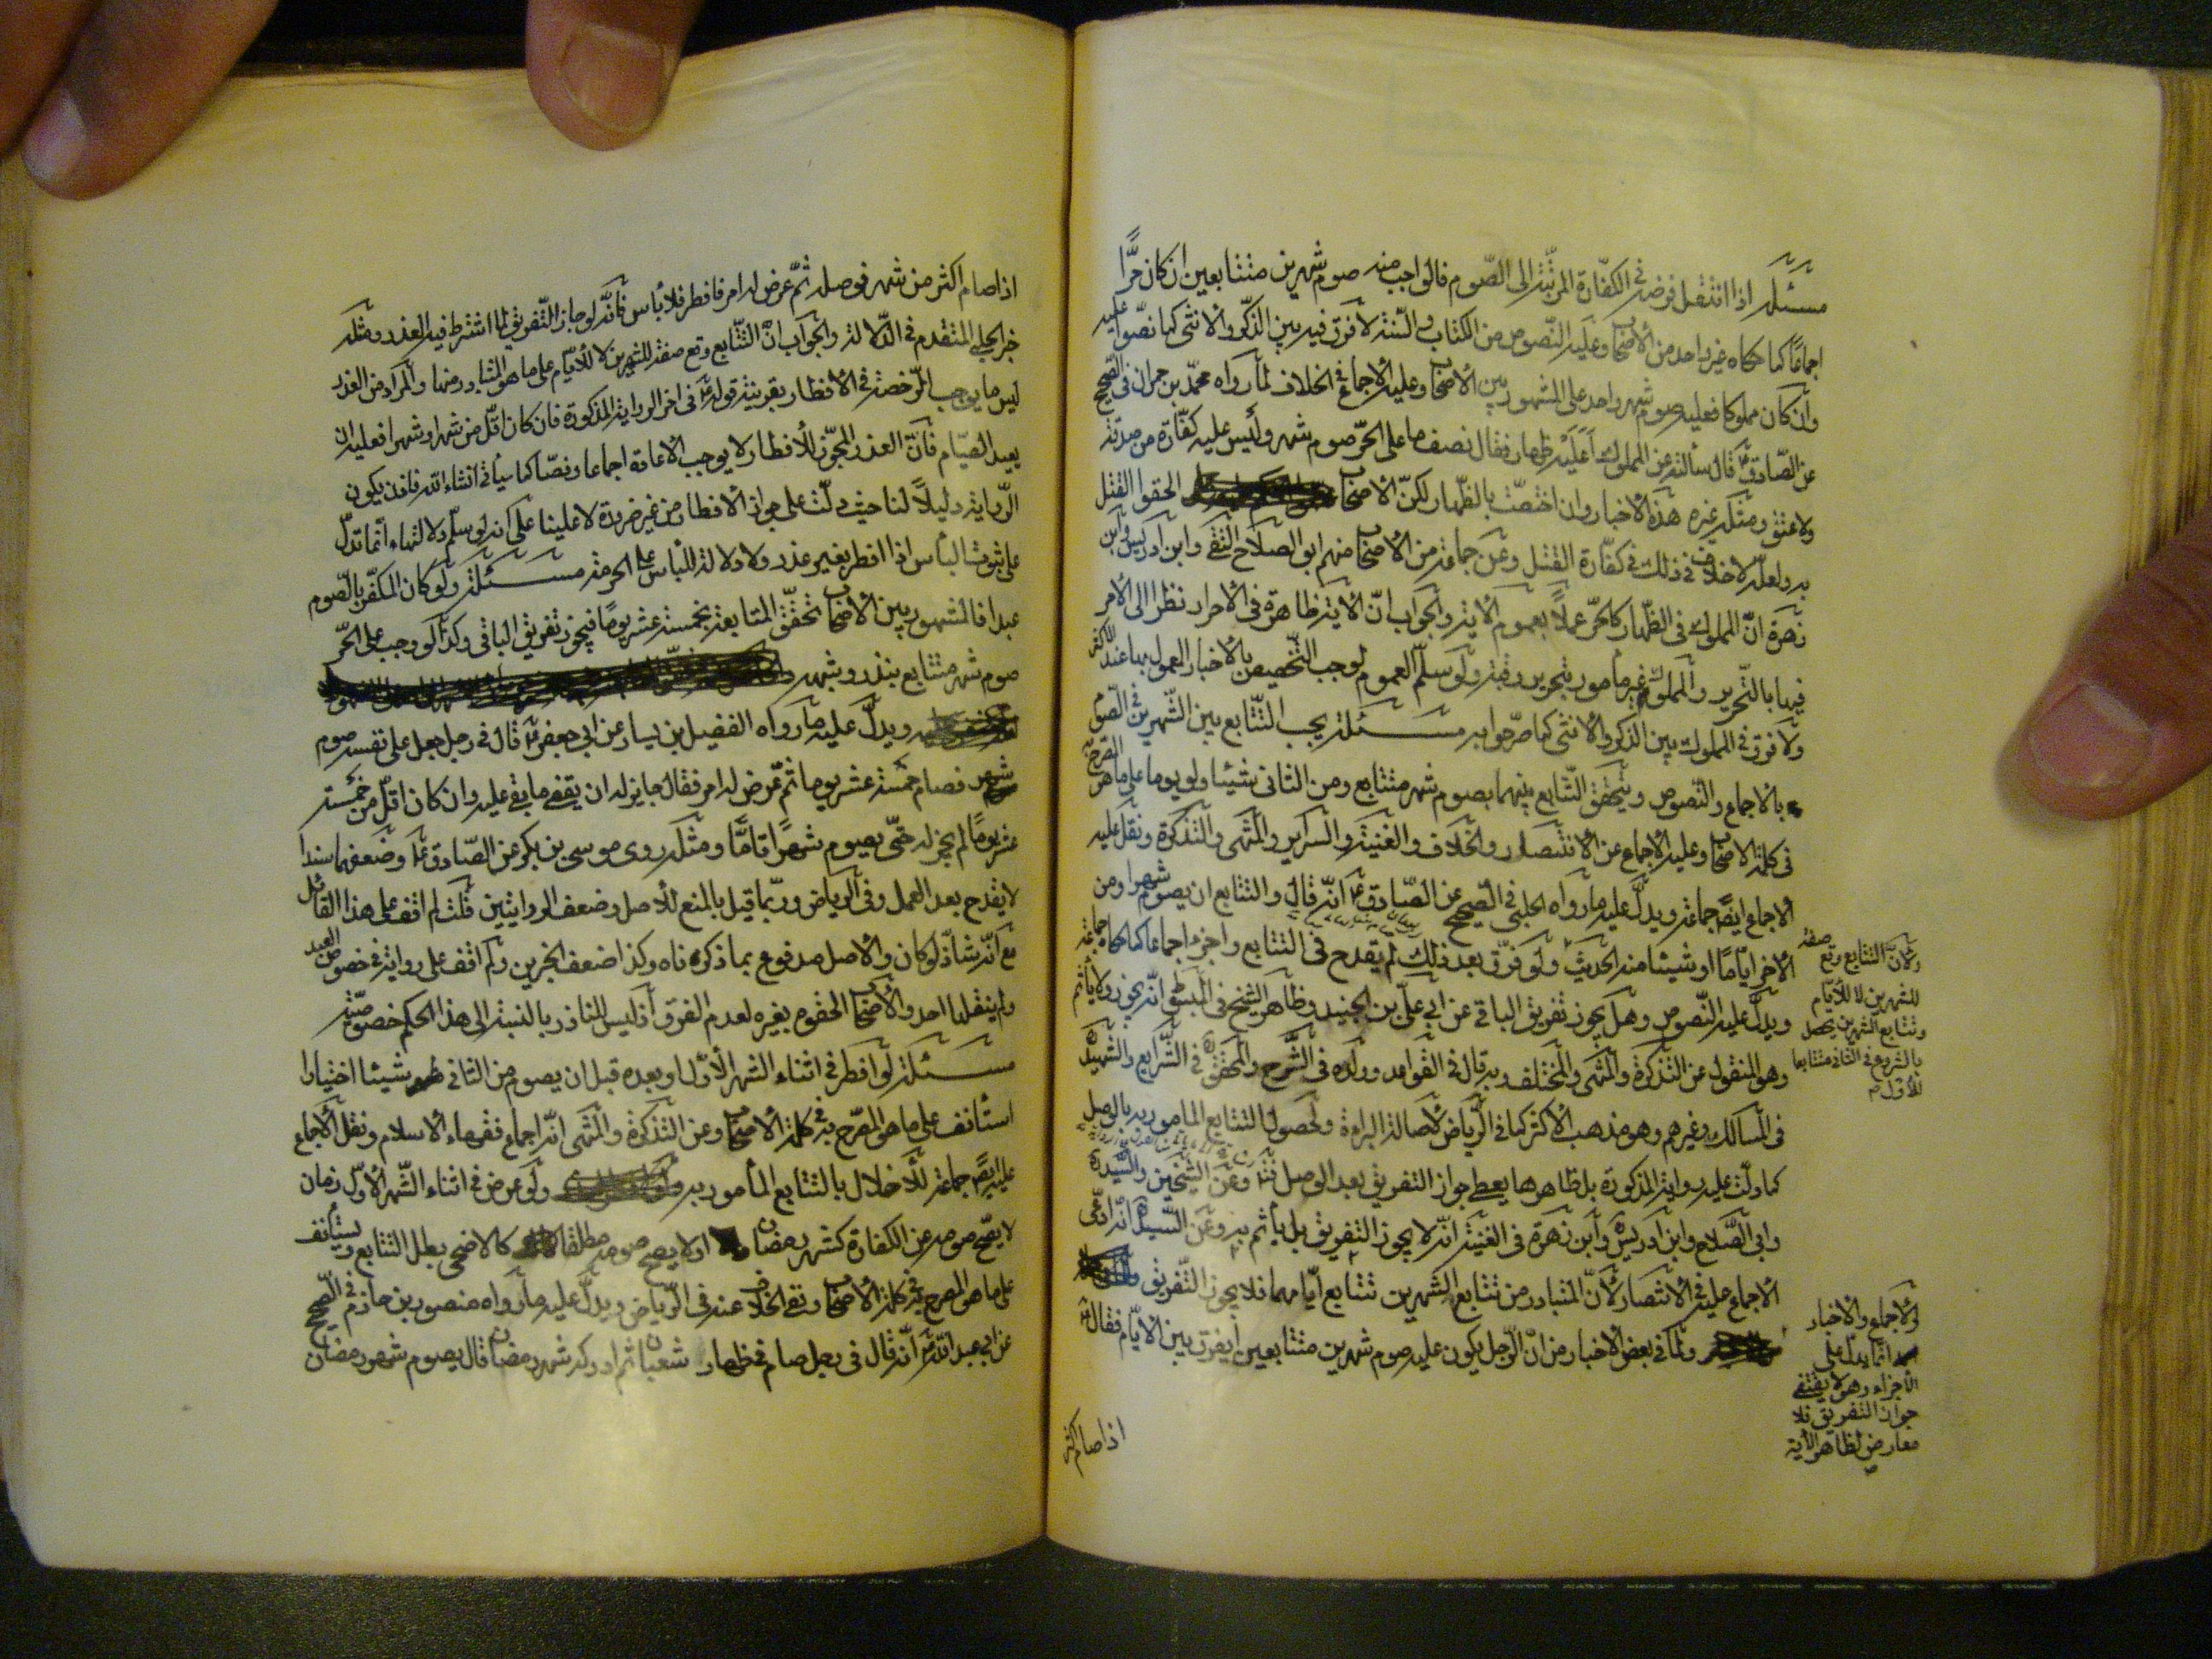 مسئلة اذا انتقل فرضه فى الكفّارة المرتّبة الى الصّوم فالواجب منه صوم شهرين متتابعين ان كان حرًّا
اجماعًا كما حكاه غير واحد من الأصحاب وعليه النّصوص من الكتاب والسّنة لا فرق فيه بين الذّكر والانثى كما نصّوا عليه
وان كان مملوكا فعليه صوم شهر واحد على المشهور بين الأصحاب وعليه الاجماع فى الخلاف لما رواه محمّد بن حمران فى الصّحيح
عن الصّادق ع قال سألته عن المملوك أعليه ظهار فقال نصف ما على الحرّ صوم شهر وليس عليه كفّارة من صدقة
ولا عتق ومثله غيره هذه الأخبار وان اختصّت بالظّهار لكنّ الأصحاب الحقوا القتل
به ولعلّه لا خلاف فى ذلك فى كفّارة القتل وعن جماعة من الأصحاب منهم ابو الصّلاح التّقى وابن ادريس وابن
زهرة انّ المملوك فى الظّهار كالحرّ عملاً بعموم الآية والجواب انّ الآية ظاهرة فى الأحرار نظرا الى الأمر
فيها بالتّحرير والمملوك غير مأمور بتحرير رقبة ولو سلّم العموم لوجب التّخصيص بالأخبار المعمول بها عند الأكثر
ولا فرق فى المملوك بين الذكر والانثى كما صرّحوا به مسئلة يجب التّتابع بين الشّهرين فى الصّوم
بالاجماع والنّصوص ويتحقّق التّتابع بينهما بصوم شهر متتابع ومن الثانى شيئا ولو يوما على ما هو المصرّح به
فى كلمة الاصحاب وعليه الإجماع عن الانتصار والخلاف والغنية والسرائر والمنتهى والتذكرة ونقل عليه
الاجماع ايضًا جماعة ويدلّ عليه ما رواه الحلبى فى الصّحيح عن الصّادق ع انّه قال والتتابع ان يصوم شهرا ومن
الآخر ايّامًا او شيئا منه الحديث ولو فرّق بعد ذلك لم يقدح فى التتابع واجزء اجماعا كما حكاه جماعة
ويدلّ عليه النّصوص وهل يجوز تفريق الباقى عن ابى علىّ بن الجنيد وظاهر الشيخ فى المبسوط انّه يجوز ولا يأثم
وهو المنقول عن التّذكرة والمنتهى والمختلف وبه قال فى القواعد وولده فى الشّرح والمحقّق فى الشّرايع والشّهيد
فى المسالك وغيرهم وهو مذهب الأكثر كما فى الرّياض لأصالة البراءة ولحصول التتابع المامور به بالوصل
كما دلّت عليه رواية المذكورة بل ظاهرها يعطى جواز التفريق بعد الوصل وعن الشيخين والسّيد
وابى الصّلاح وابن ادريس وابن زهرة فى الغنية انّه لا يجوز التفريق بل يأثم به وعن السّيد انّه ادّعى
الاجماع عليه فى الانتصار لأنّ المتبادر من تتابع الشهرين تتابع ايّامهما فلا يجوز التّفريق
ولما فى بعض الأخبار من انّ الرّجل يكون عليه صوم شهرين متتابعين أيفرق بين الايّام فقال
ولأنّ التتابع وقع صفة
للشهرين لا للأيّام
وتتابع الشهرين يحصل
بالشروع فى الثانى متتابعا
للأوّل
والاجماع والاخبار
انّما يدلّ على
الاجزاء وهو لا يقتضى
جواز التفريق فلا
معارض لظاهر الآية
اذا صام اكثر
اذا صام اكثر من شهر فوصله ثمّ عرض له امر فافطر فلا بأس فانّه لو جاز التّفريق لما اشترط فيه العذر ومثله
خبر الحلبى المتقدم فى الدّلالة والجواب انّ التّتابع وقع صفة للشهرين لا للأيّام على ما هو المتبادر منها والمراد من العذر
ليس ما يوجب الرّخصة فى الأفطار بقرينة قوله ع فى اخر الرواية المذكورة فان كان اقلّ من شهر او شهرا فعليه ان
يعيد الصّيام فانّ العذر المجوّز للأفطار لا يوجب الأعادة اجماعا ونصّا كما سيأتى انشاء الله فاذن يكون
الرّواية دليلاً لنا حيث دلّت على جواز الأفطار من غير ضرورة لا علينا على انه لو سلّم دلالتها انّما تدلّ
على ثبوت البأس اذا افطر بغير عذر ولا دلالة للبأس على الحرمة مسئلة ولو كان المكفّر بالصّوم
عبدا فالمشهور بين الأصحاب تحقّق المتابعة بخمسة عشر يومًا فيجوز تفريق الباقى وكذا لو وجب على الحرّ
صوم شهر متتابع بنذر وشبهه
ويدلّ عليه ما رواه الفضيل بن يسار عن ابى جعفر ع قال فى رجل جعل على نفسه صوم
شهر فصام خمسة عشر يوما ثمّ عرض له امر فقال جايز له ان يقضى ما بقى عليه وان كان اقلّ من خمسة
عشر يومًا لم يجز له حتّى يصوم شهرًا تامًّا ومثله روى موسى بن بكر عن الصّادق ع وضعفهما سندا
لا يقدح بعد العمل وفى الرياض وربّما قيل بالمنع للأصل وضعف الروايتين قلت لم اقف على هذا القائل
مع انّه شاذّ لو كان والأصل مدفوع بما ذكرناه وكذا ضعف الخبرين ولم اقف على رواية فى خصوص العبد
ولم ينقلها احد والأصحاب الحقوه بغيره لعدم الفرق اذ ليس للناذر بالنسبة الى هذا الحكم خصوصيّة
مسئلة لو افطر فى اثناء الشهر الأوّل او بعده قبل ان يصوم من الثانى شيئا اختيارا
استأنف على ما هو المصرّح به فى كلمة الأصحاب وعن التذكرة والمنتهى انّه اجماع فقهاء الاسلام ونقل الأجماع
عليه ايضًا جماعة للأخلال بالتتابع المأمور به ولو عرض فى اثناء الشّهر الأوّل زمان
لا يصّح صومه عن الكفارة كشهر رمضان او لا يصح صومه مطلقا كالاضحى بطل التتابع ويستأنف
على ما هو المصرح به فى كلمة الأصحاب ونفى الخلاف عنه فى الرّياض ويدلّ عليه ما رواه منصور بن حازم فى الصّحيح
عن ابى عبد الله ع انّه قال فى رجل صام فى ظهار شعبان ثم ادركه شهر رمضان قال يصوم شهر رمضان